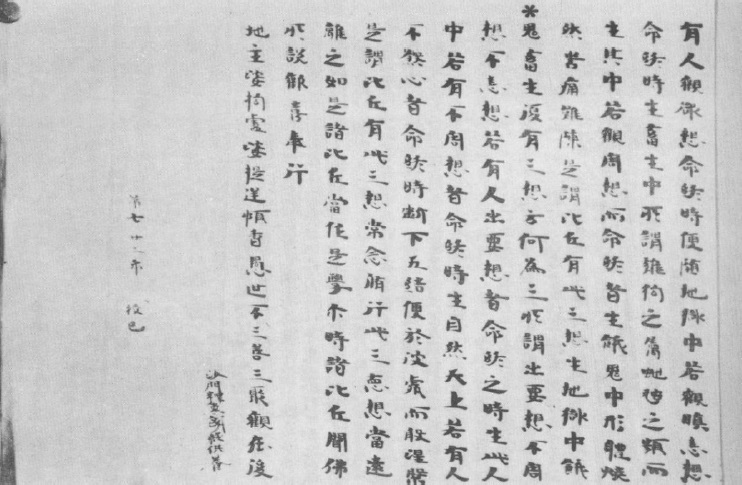 有人觀欲想命終時便墮地獄中若觀瞋恚想
命終時生畜生中所謂雞狗之屬蛇之類而
生其中若觀害想而命終者生餓鬼中形體燒
然苦痛難陳是謂比丘有此三想生地獄中餓
*鬼畜生復有三想云何為三所謂出要想不害
想不恚想若有人出要想者命終之時生此人
中若有不害想者命終時生自然天上若有人
不煞心者命終時斷下五結便於彼處而般涅槃
是謂比丘有此三想常念脩行此三惡想當遠
離之如是諸比丘當作是學尒時諸比丘聞佛
所說歡喜奉行
地主婆拘婆提逆順香愚世不三善三聚觀在後
第七 廿二帋 校已
沙門釋供養